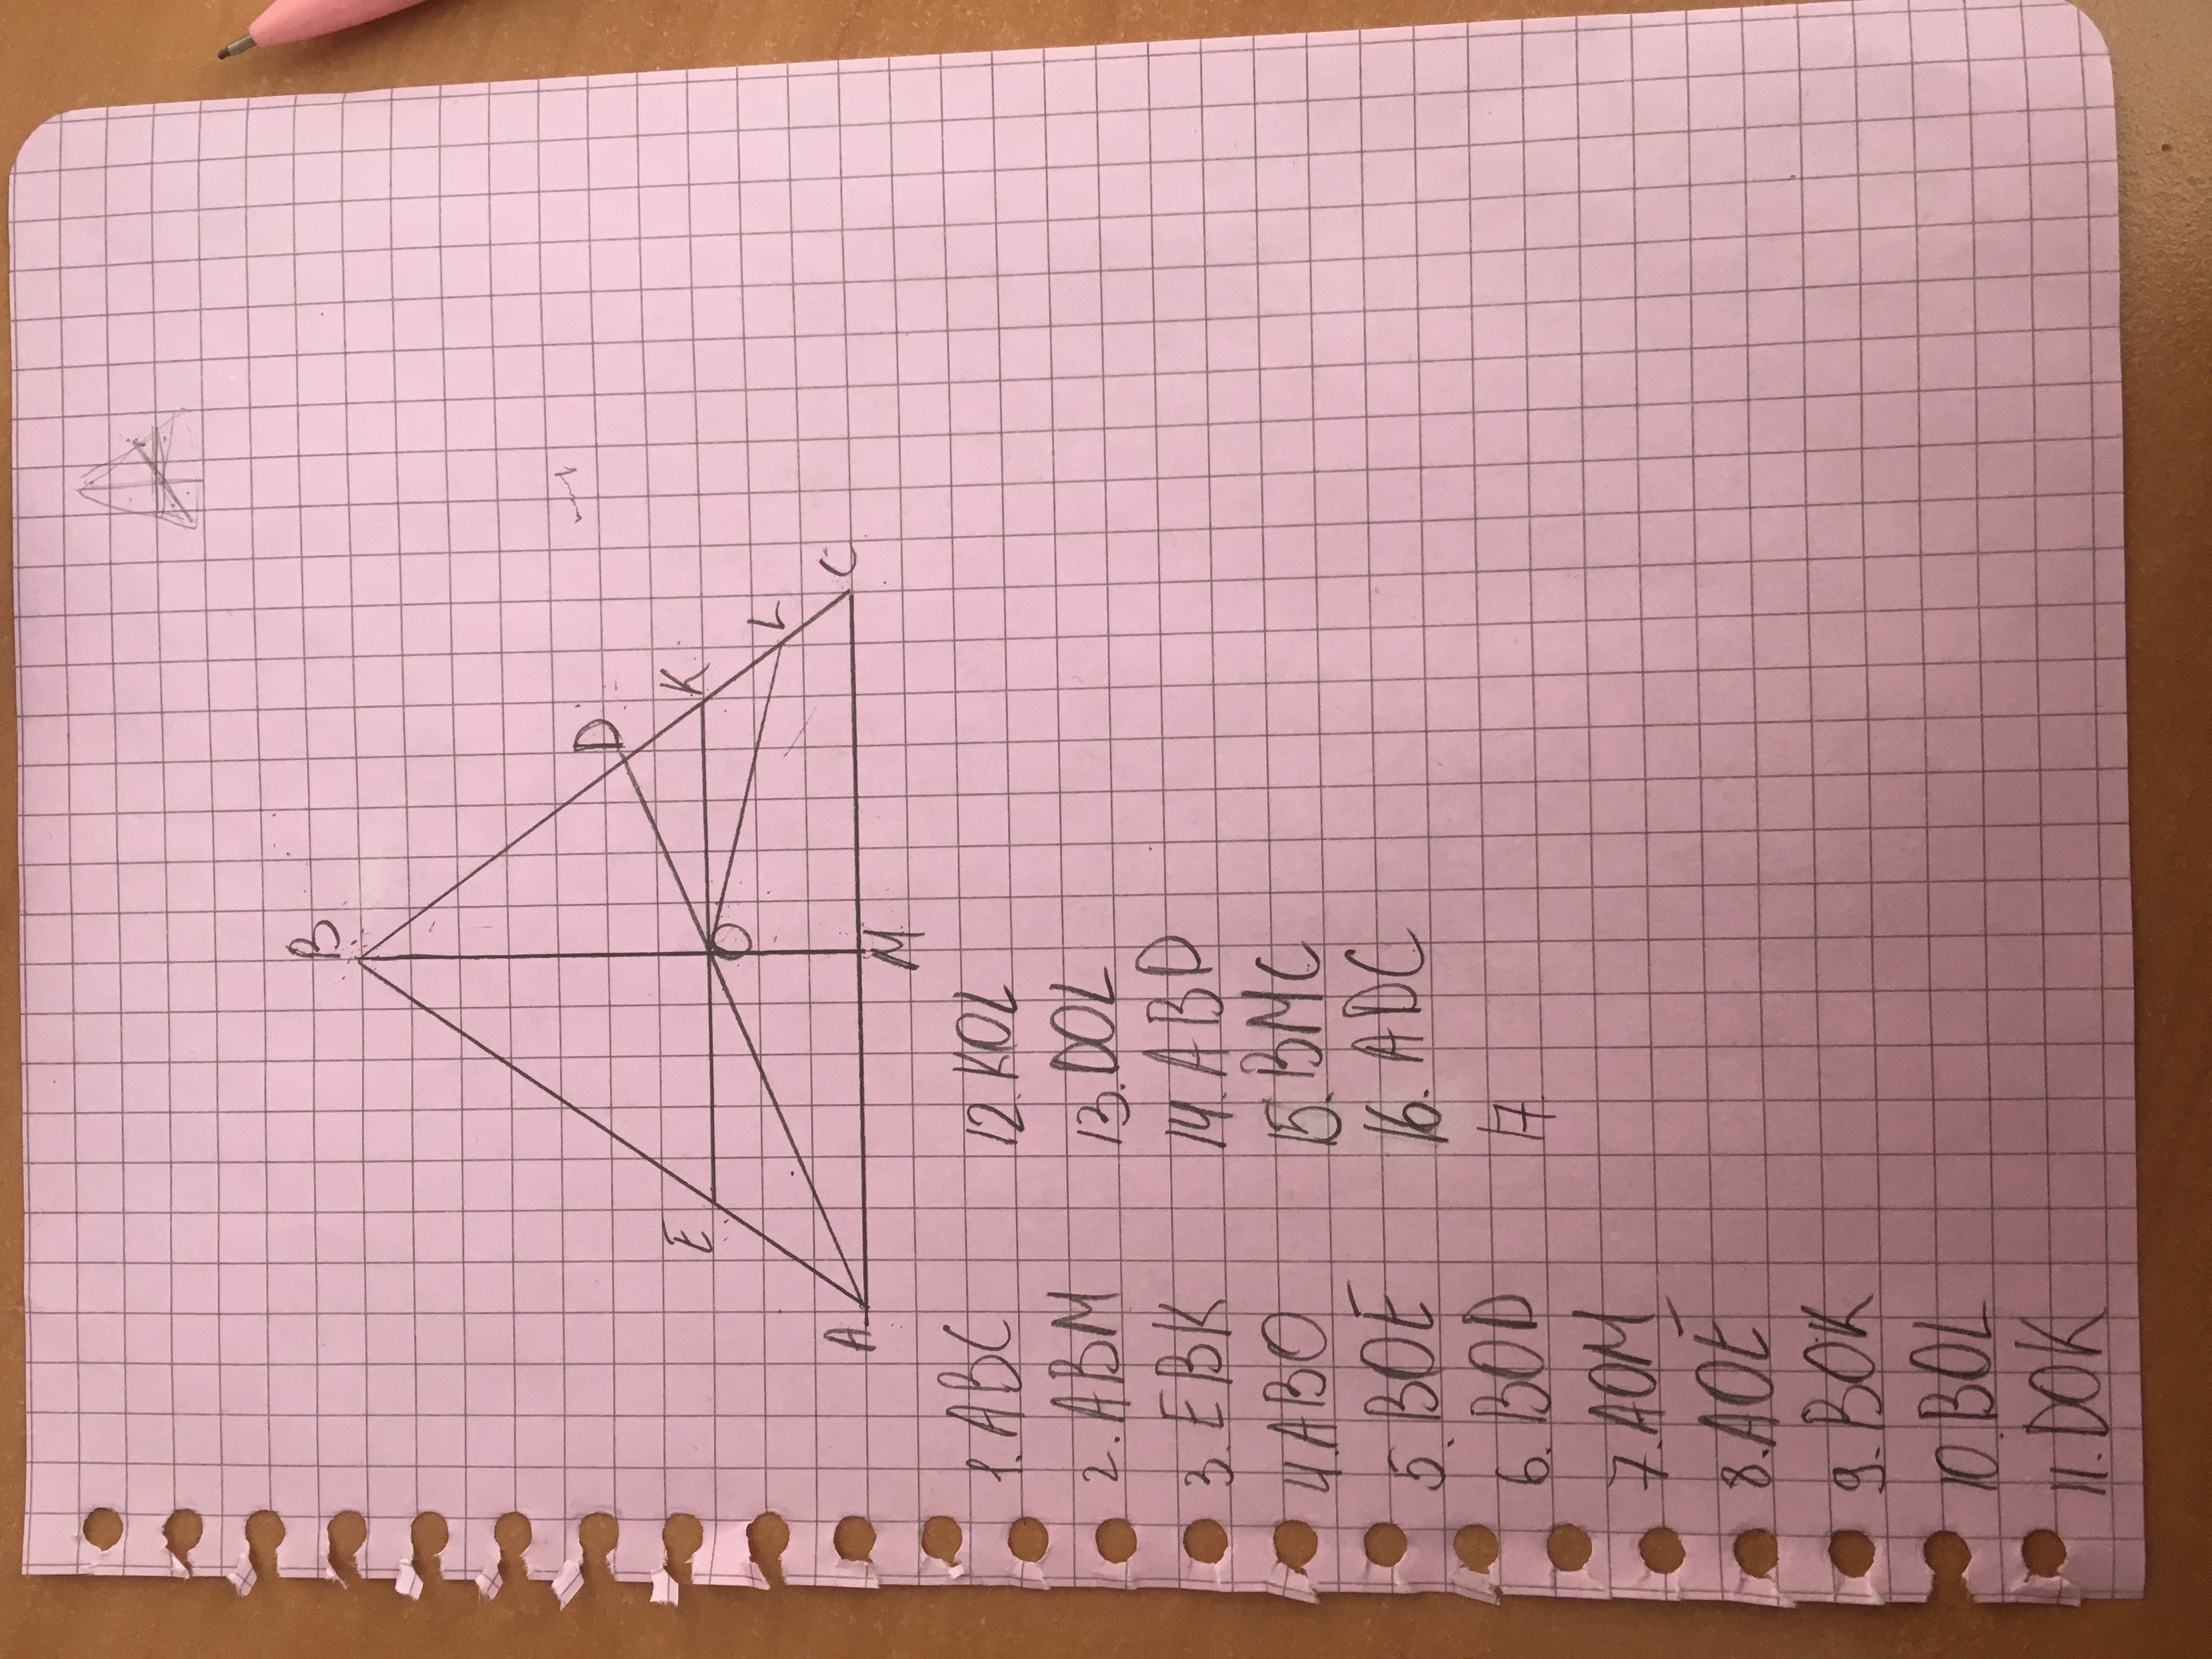 B
D
K
L
E
O
A
M
C
1. ABC
2. ABM
3. EBK
4. ABO
5. BOE
6. BOD
7. AOM
8. AOE
9. BOK
10. BOL
11. DOK
12. KOL
13. DOL
14. ABD
15. BMC
16. ADC
17